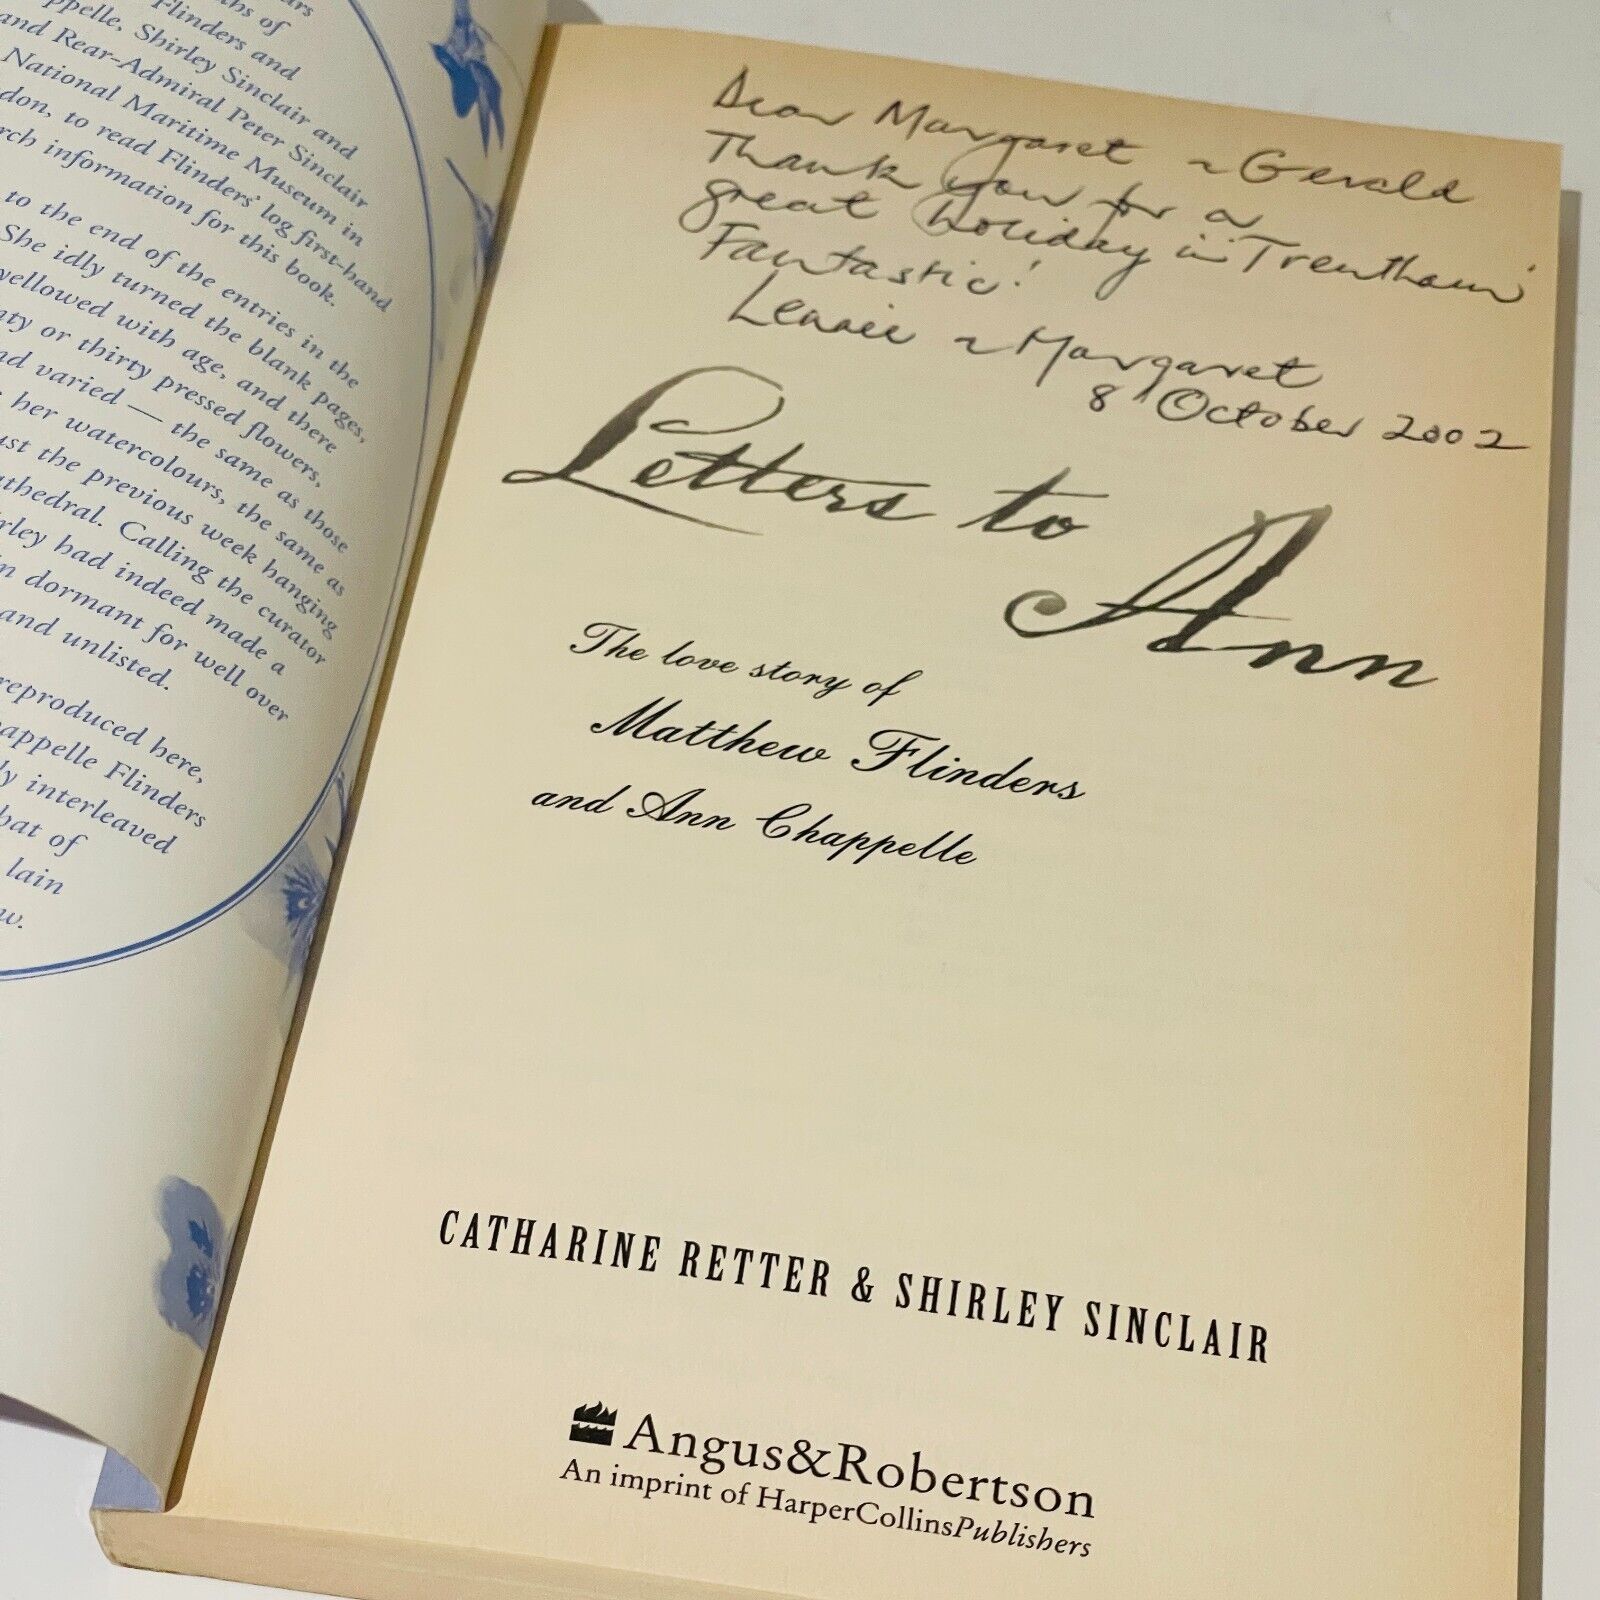 ars
ths of
Flinders and
ppelle, Shirley Sinclair and
and Rear-Admiral Peter Sinclair
National Maritime Museum in
don, to read Flinders' log first-hand
rch information for this book.
to the end of the entries in the
She idly turned the blank pages,
yellowed with age, and there
nty or thirty pressed flowers,
nd varied — the same as those
her watercolours, the same as
ust the previous week hanging
athedral. Calling the curator
irley had indeed made a
n dormant for well over
and unlisted.
reproduced here,
happelle Flinders
ly interleaved
hat of
lain
w.
Dear Margaret ~ Gerald
Thank you for a
great holiday in 'Trentham'
Fantastic!
~ Margaret
8 October 2002
Letters to
Ann
The love story of
Matthew Flinders
and Ann Chappelle
CATHARINE RETTER & SHIRLEY SINCLAIR
Angus&Robertson
An imprint of HarperCollinsPublishers